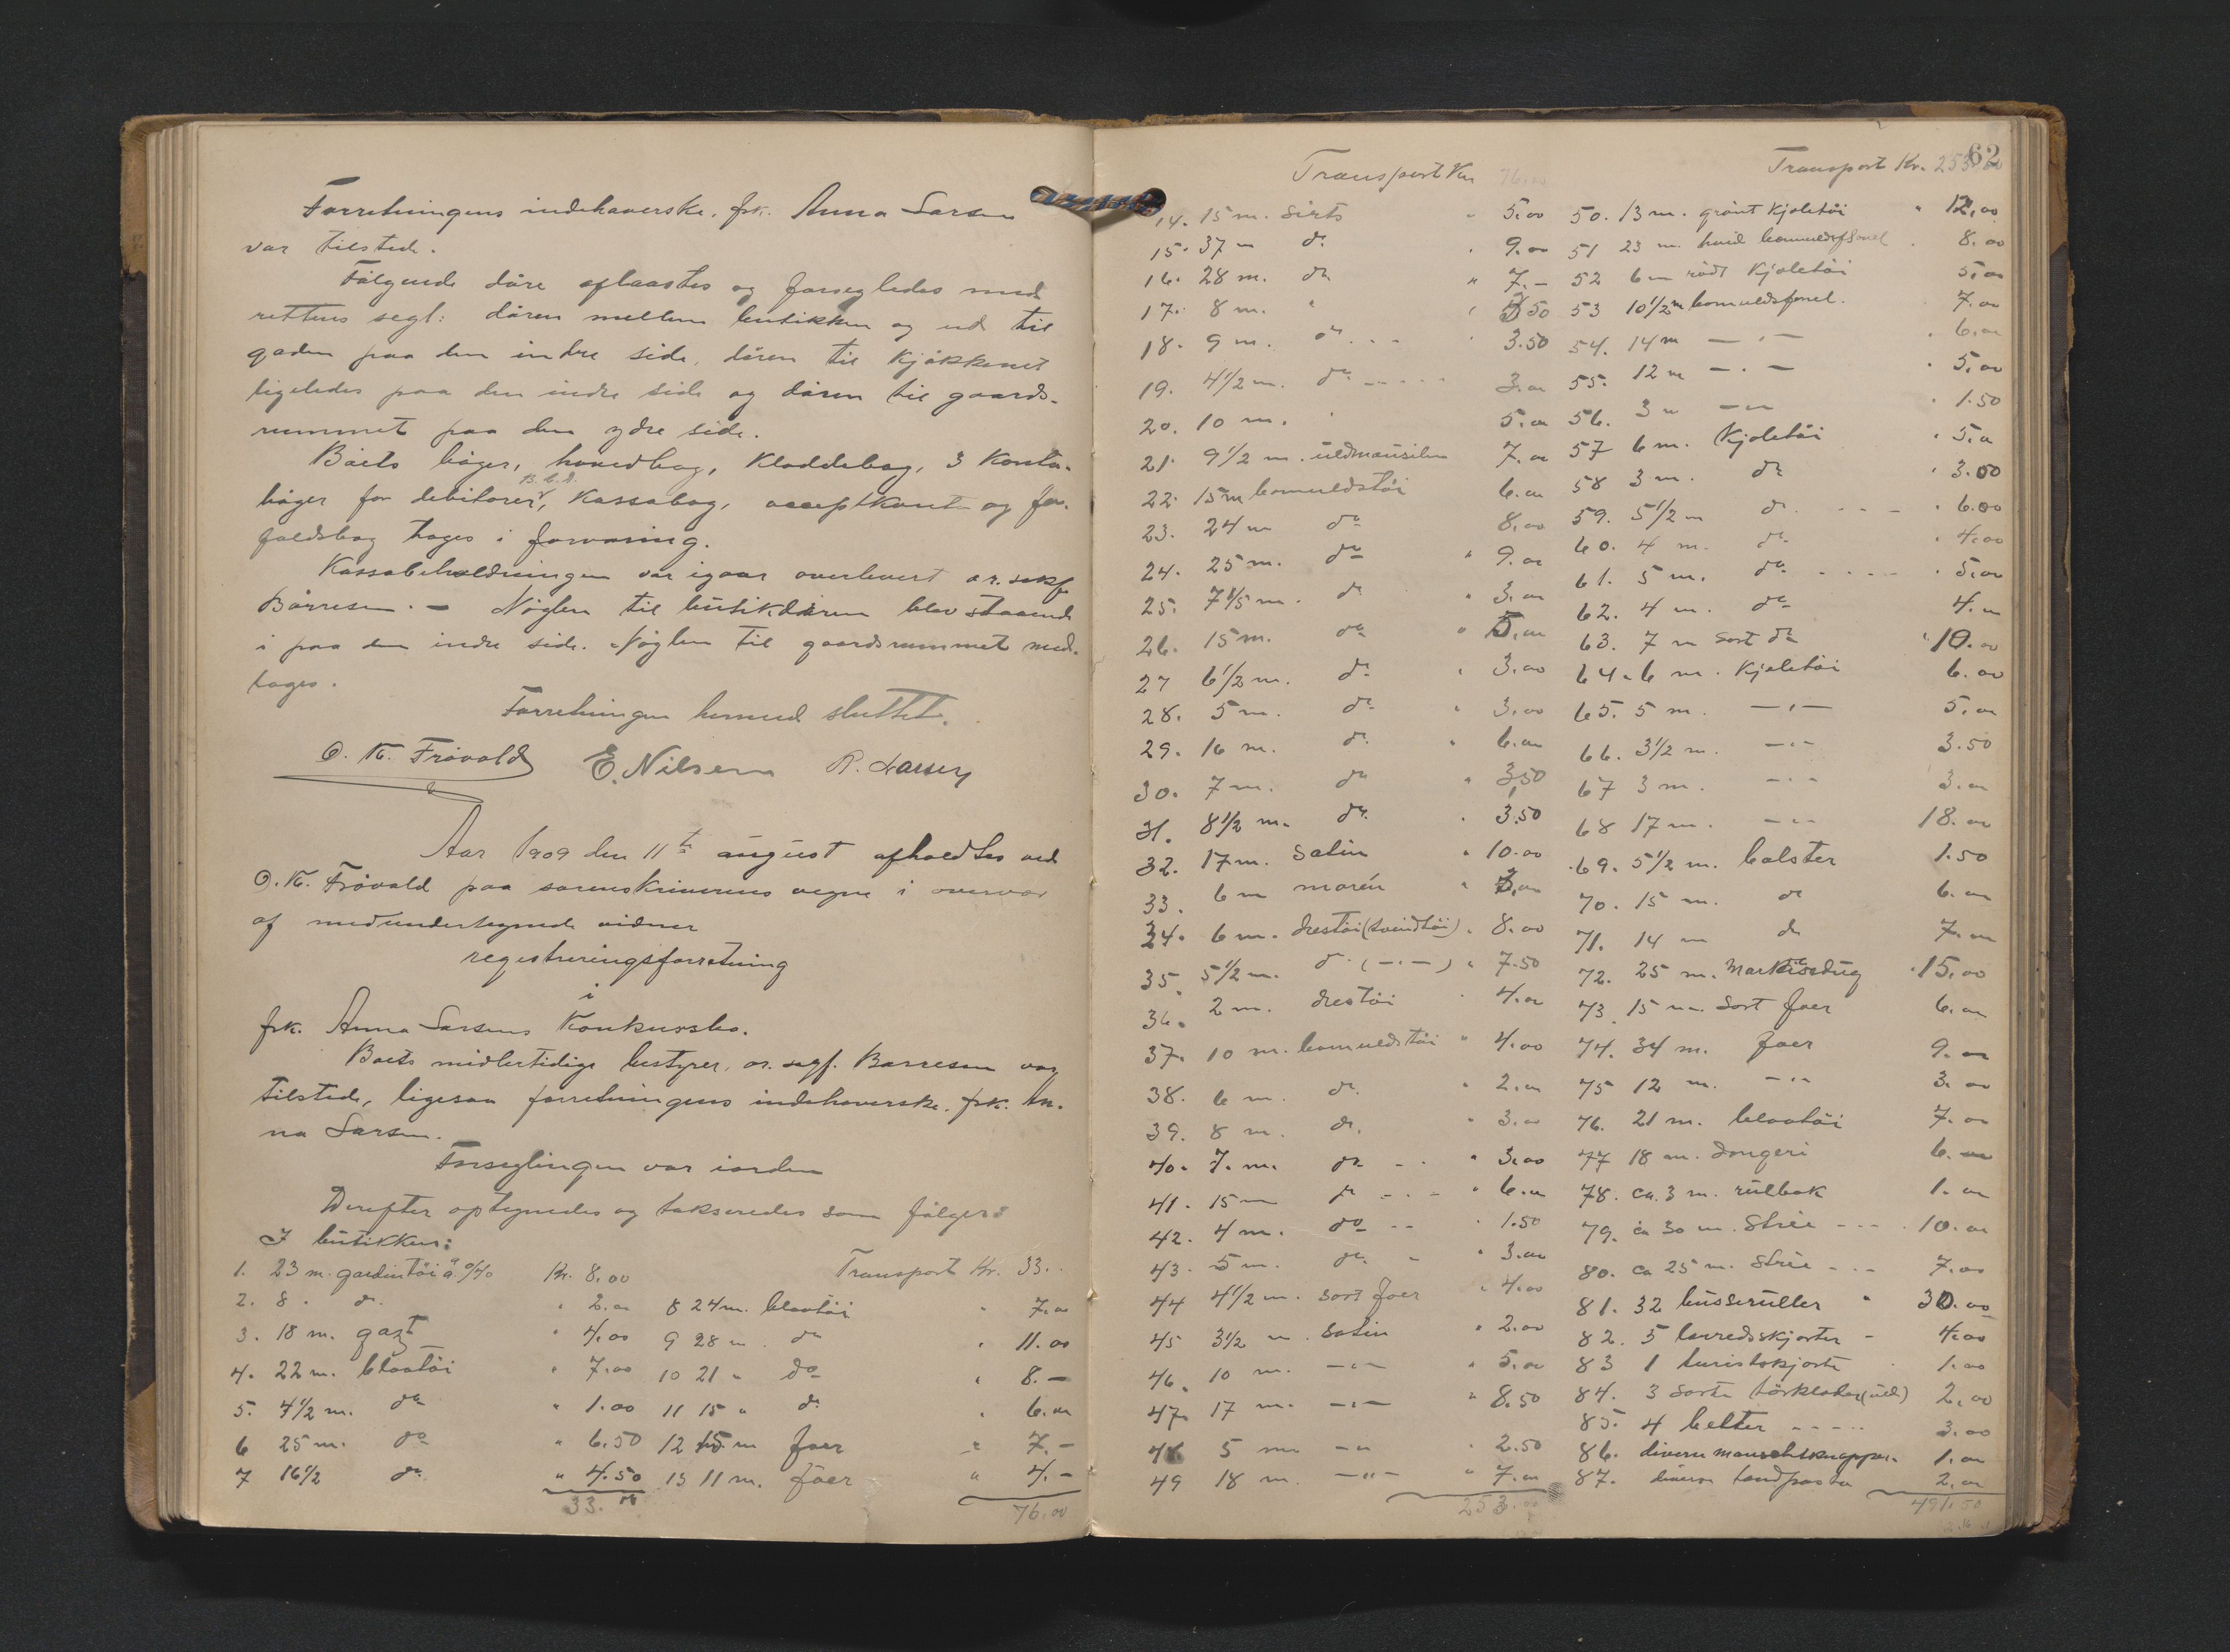 Forretningens indehaverske, frk. Anna Larsen
var tilstede.
Følgende døre aflaastes og forsegledes med
rettens segl: døren mellem butikken og ud til
gaden paa den indre side, døren til kjøkkenet
ligeledes paa den indre side og døren til gaards-
rummet paa den ydre side.
Boets bøger, hovedbog, kladdebog, 3 konto-
bøger for debitorer, kassabog, acceptkonto og for-
faldsbog toges i forvaring.
Kassabeholdningen var igaar overlevert o.r. sakf.
Børresen. - Nøglen til butikdøren blev staaende
i paa den indre side. Nøglen til gaardsrummet med-
toges.
Forretningen hermed sluttet.
O. K. Frøvold E. Nilsen R. Larsen
Aar 1909 den 11te august afholdtes ved
O. K. Frøvold paa sorenskriverens vegne i overvær
af medundertegnede vidner
registreringsforretning
i
frk. Anna Larsens konkursbo.
Boets midlertidige bestyrer, o.r. sagf. Børresen var
tilstede, ligesaa forretningens indehaverske, frk. An-
na Larsen.
Forseglingen var iorden
Derefter optegnedes og takseredes som følger:
I butikken:
1. 23 m. gardintøi à 0/40 Kr. 8.00
2. 8 " do. " 2.00
3. 18 m. gazt " 4.00
4. 22 m. blaatøi " 7.00
5. 4 1/2 m. do " 1.00
6 25 m. do " 6.50
7 16 1/2 do " 4.50
33.00
Transport Kr. 33..
8 24 m. blaatøi " 7.00
9 28 m. do " 11.00
10 21 " do " 8.-
11 15 " do " 6.00
12 15 m foer " 7.-
13 11 m. foer " 4.-
76.00
Transport Kr. 76.00
14. 15 m. Sirts " 5.00
15. 37 m do. " 9.00
16. 28 m. do. " 7.-
17. 8 m. " " 3.50
18. 9 m. do. " 3.50
19. 4 1/2 m. do. 3.00
20. 10 m. " 5.00
21. 9 1/2 m. uldmousilin 7.00
22. 15 m bomuldstøi 6.00
23. 24 m do 8.00
24. 25 m. do " 9.00
25. 7 1/5 m. do " 3.00
26. 15 m. do " 5.00
27 6 1/2 m. do. " 3.00
28. 5 m. do. " 3.00
29. 16 m. do. " 6.00
30. 7 m. do " 3.50
31. 8 1/2 m. do. " 3.50
32. 17 m. Satin " 10.00
33. 6 m moren " 3.00
34. 6 m. drestøi (tvindtøi) " 8.00
35. 5 1/2 m. do. (-"-) " 7.50
36. 2 m. drestøi " 4.00
37. 10 m. bomuldstøi " 4.00
38. 6 m. do. " 2.00
39. 8 m. do. " 3.00
40. 7. m. do " 3.00
41. 15 m do " 6.00
42. 4 m. do " 1.50
43. 5 m. do. " 3.00
44 4 1/2 m. sort foer " 4.00
45 3 1/2 m. Satin " 2.00
46. 10 m. -"- " 5.00
47. 17 m. -"- " 8.50
48 5 m -"- " 2.50
49 18 m. -"- " 7.00
253.00
62
Transport Kr. 253
50. 13 m. grønt kjoletøi " 12.00
51 23 m. hvid bomuldsflonel " 8.00
52 6 m rødt kjoletøi 5.00
53 10 1/2 m bomuldsfonel. " 7.00
54. 14 m -"- " 6.00
55. 12 m -"- " 5.00
56. 3 m -"- " 1.50
57 6 m. kjoletøi " 5.00
58 3 m. do " 3.00
59. 5 1/2 m do. " 6.00
60. 4 m. do. " 4.00
61. 5 m. do. " 5.00
62. 4 m. do 4.00
63. 7 m sort do " 10.00
64. 6 m. kjoletøi 6.00
65. 5 m. -"- 5.00
66. 3 1/2 m. -"- 3.50
67 3 m. -"- 3.00
68 17 m. -"- 18.00
69. 5 1/2 m. bolster 1.50
70. 15 m. do 6.00
71. 14 m do 7.00
72. 25 m. Markisedug " 15.00
73. 15 m. Sort foer 6.00
74. 34 m. foer 9.00
75 12 m. -"- 3.00
76. 21 m. blaatøi 7.00
77 18 m. dongeri 6.00
78. ca. 3 m. rulbok 1.00
79. ca 30 m. Strie 10.00
80. ca 25 m. Strie 7.00
81. 32 busseruller " 30.00
82. 5 lærredsskjorter - 4.00
83 1 turistskjorte 1.00
84. 3 sorte tørklæder (uld) 2.00
85. 4 belter 3.00
86. diverse manschetknapper. 1.00
87. diverse tandpasta 2.00
491.50